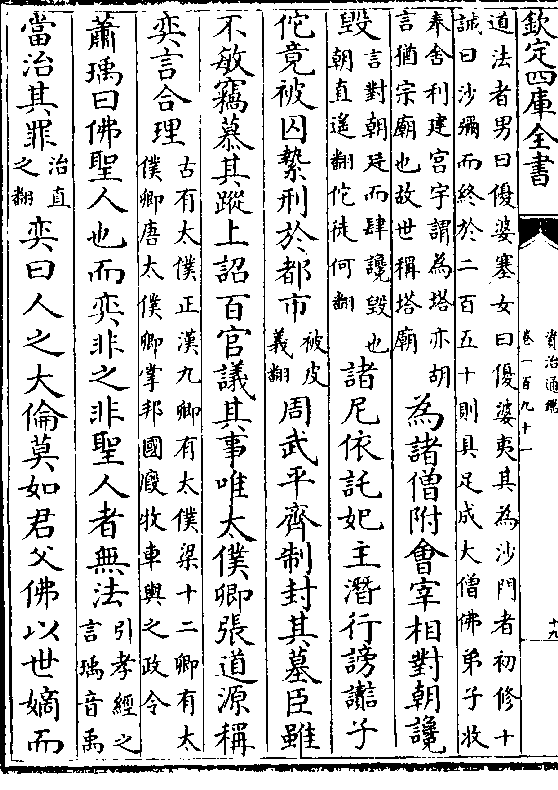 欽定四庫全書
資治通鑑
卷一百九十一
十九
道法者男曰優婆塞女曰優婆夷其為沙門者初修十
誡曰沙彌而終於二百五十則具足成大僧佛弟子收
奉舍利建宮宇謂為塔亦胡
言猶宗廟也故世稱塔廟
為諸僧附會宰相對朝讒
毀
言對朝廷而肆讒毀也
朝直遥翻佗徒何翻
諸尼依託妃主潛行謗讟子
佗竟被囚縶刑於都市
被皮
義翻
周武平齊制封其墓臣雖
不敏竊慕其蹤上詔百官議其事唯太僕卿張道源稱
奕言合理
古有太僕正漢九卿有太僕梁十二卿有太
僕卿唐太僕卿掌邦國廐牧車輿之政令
蕭瑀曰佛聖人也而奕非之非聖人者無法
引孝經之
言瑀音禹
當治其罪
治直
之翻
奕曰人之大倫莫如君父佛以世嫡而